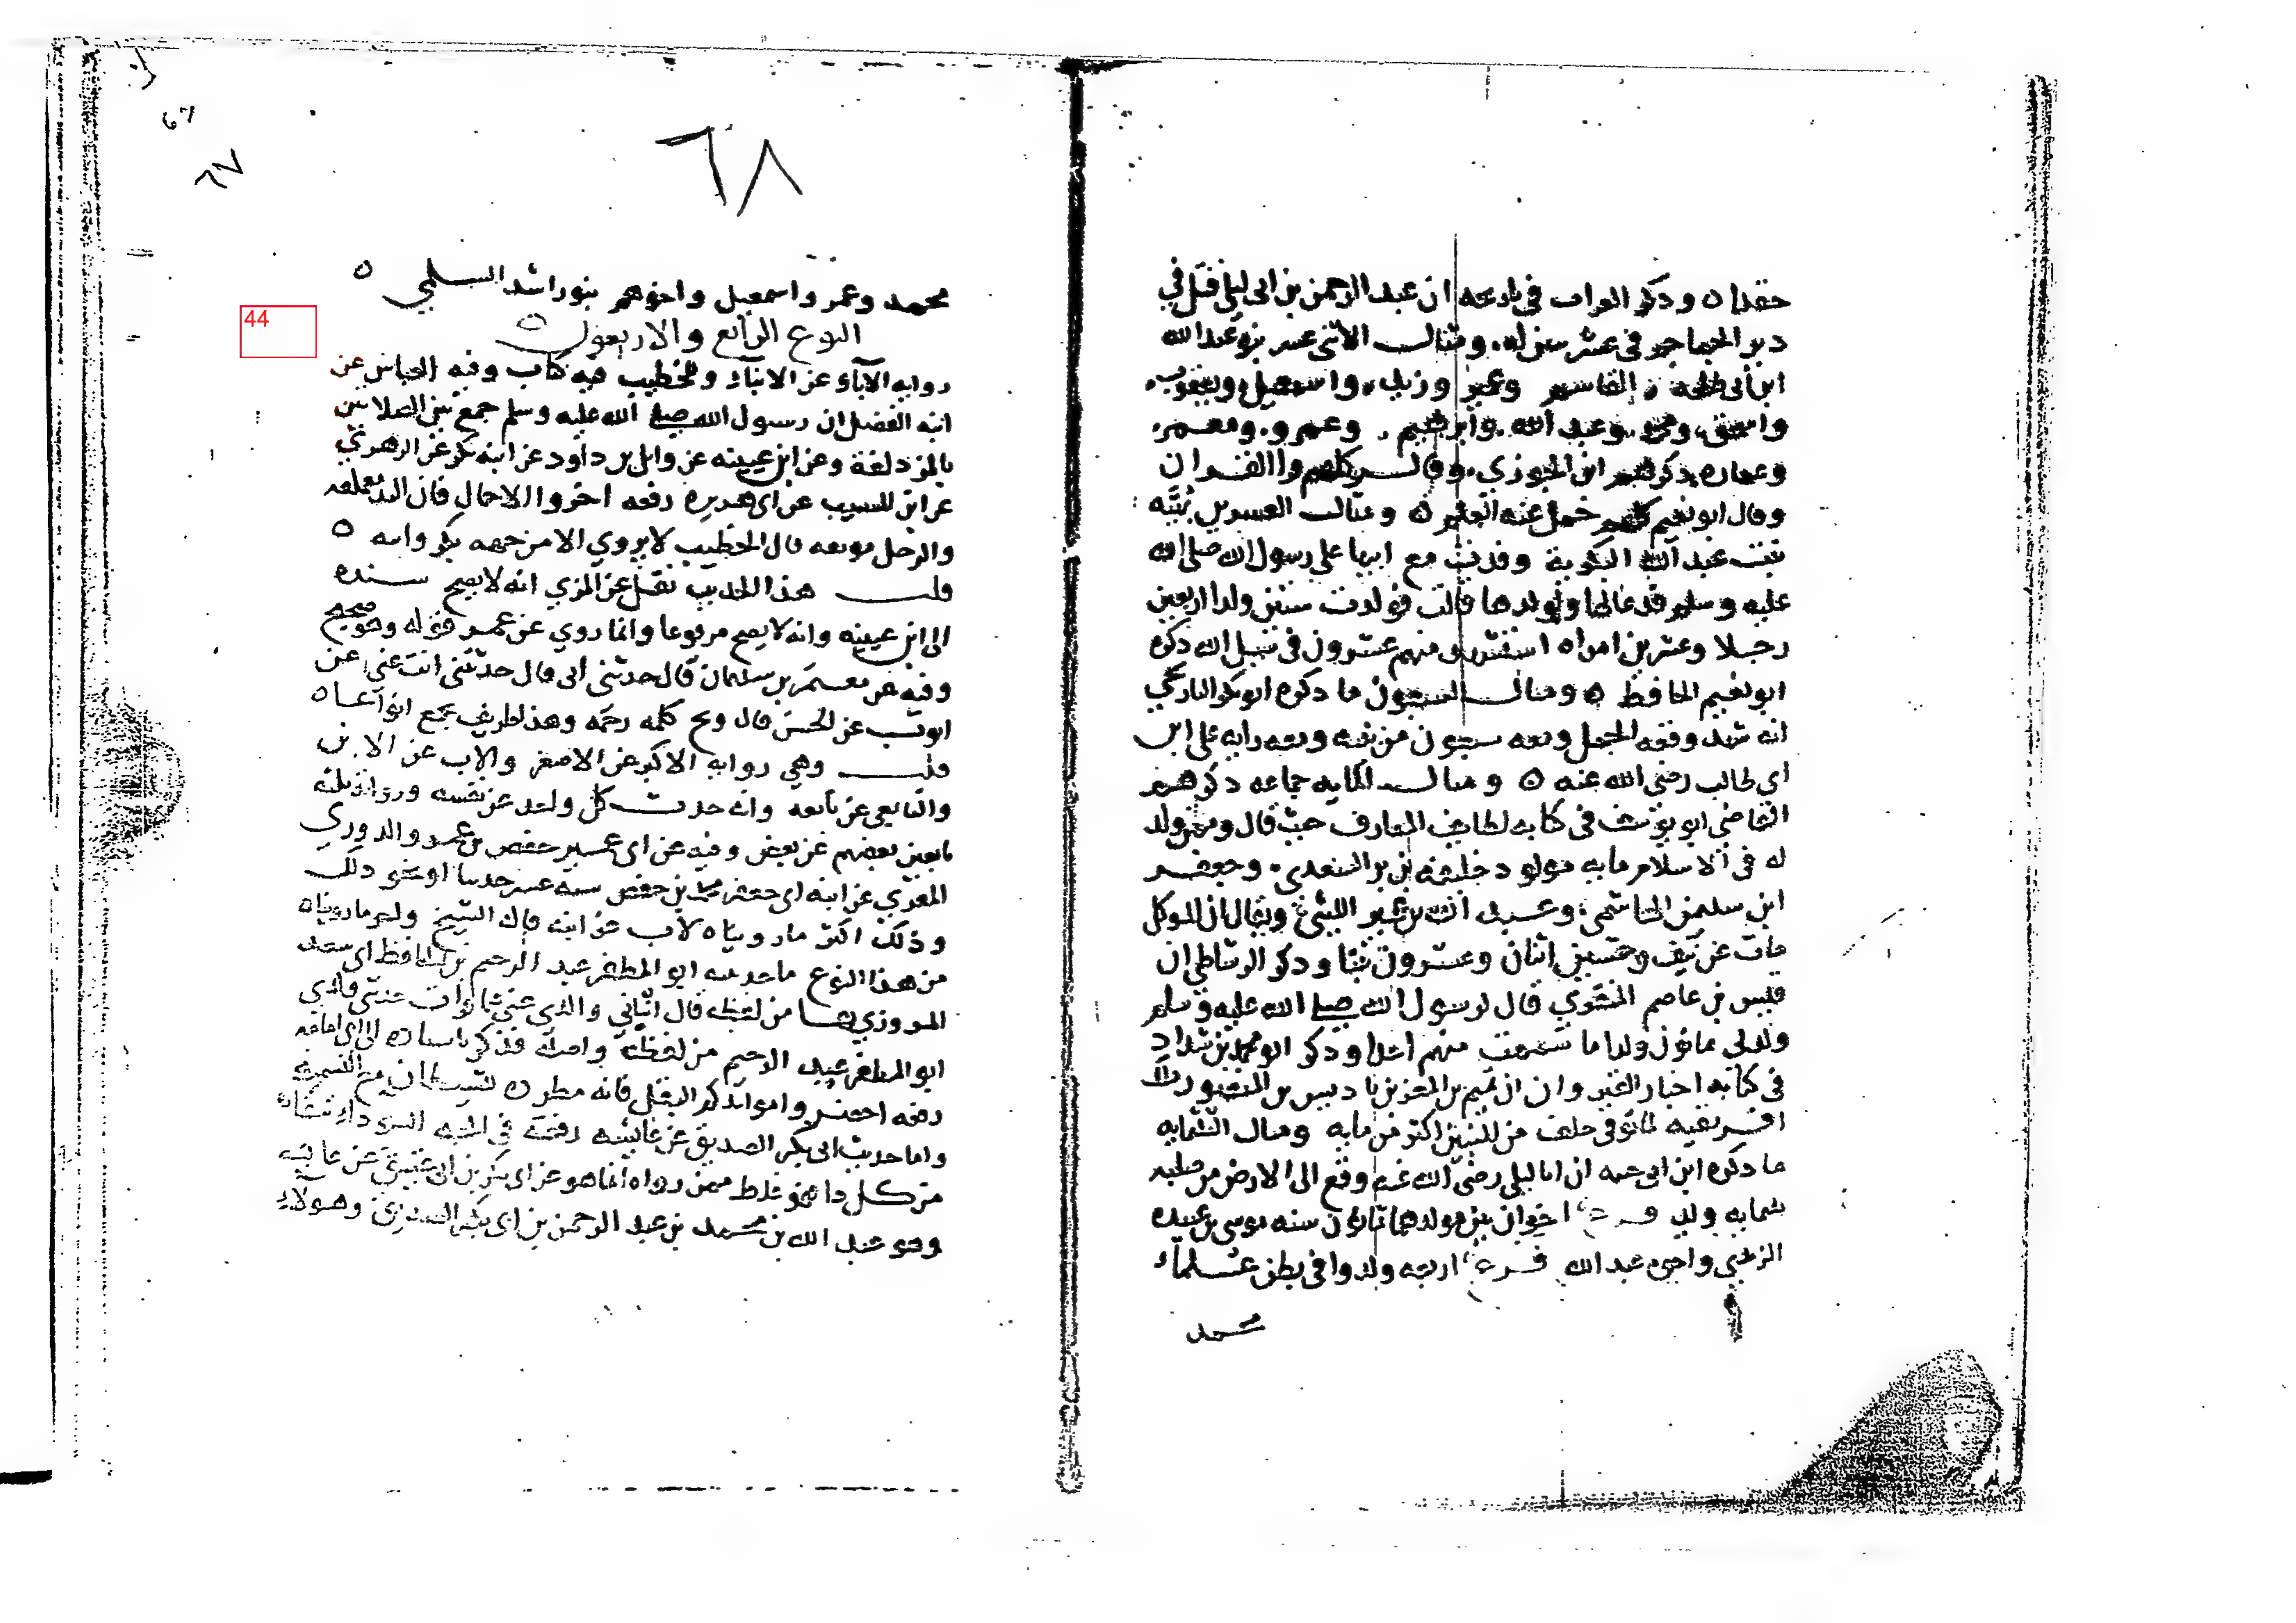 حقدا ٥ وذكر العراب في تاريخه ان عبد الرحمن بن ابي ليلى قتل في
دير الجماجم في عشر من له ومثال الاثنى عشر بنو عبد الله
ابن ابي طلحة القاسم وعمير وزيد واسمعيل ويعقوب
واسحق ومحمد وعبد الله وابرهيم وعمرو ومعمر
وعماره ذكرهم ابن الجوزي وقال كلهم قراوا القران
وقال ابو نعيم كلهم حمل عنه العلم ٥ ومثال العشرين
بنت عبد الله البكرية وفدت مع ابيها على رسول الله صلى الله
عليه وسلم فدعا لها ولولدها قالت فولدت ستين ولدا اربعين
رجلا وعشرين امراه استشهد منهم عشرون في سبيل الله ذكره
ابو نعيم الحافظ ٥ ومثال السبعون ما ذكره ابو بكر التاريخي
انه شهد وقعه الجمل ومعه سبعون من بنيه ومعه رايه علي ابن
ابي طالب رضي الله عنه ٥ ومثال المايه جماعه ذكرهم
القاضي ابو يوسف في كتابه لطايف المعارف حيث قال وممن ولد
له في الاسلام مايه مولود خليفة بن بر السعدي وجعفر
ابن سليمن الهاشمي وعبيد الله بن عمير الليثي ويقال ان المتوكل
مات عن نيف وخمسين اثنان وعشرون بنتا وذكر الرشاطي ان
قيس بن عاصم المنقري قال لرسول الله صلى الله عليه وسلم
ولد لي ثمانون ولدا ما سميت منهم احدا وذكر ابو محمد بن شداد
في كتابه اخبار القيروان ان تميم بن المعز بن باديس بن المنصور ملك
افريقيه لما توفي خلف من البنين اكثر من مايه ومثال الثلثمايه
ما ذكره ابن ابي خيثمه ان ابا ليلى رضي الله عنه وقع الى الارض من صلبه
ثلثمايه ولد فرع اخوان بين مولدهما ثمانون سنه موسى بن عبيده
الربذي واخوه عبد الله فرع اربعه ولدوا في بطن علماء
محمد
٦٨
٦٧
محمد وعمر واسمعيل واخوهم بنو راشد السلمي ٥
44
النوع الرابع والاربعون ٥
روايه الآباء عن الابناء وللخطيب فيه كتاب وفيه العباس عن
ابنه الفضل ان رسول الله صلى الله عليه وسلم جمع بين الصلاتين
بالمزدلفة وعن ابن عيينه عن وائل بن داود عن ابنه بكر عن الزهري
عن ابن المسيب عن ابي هريره رفعه اخروا الاحمال فان اليد معلقه
والرجل موثقه قال الخطيب لا يروي الا من جهه بكر وابيه ٥
قلت هذا الحديث نقل عن المزي انه لا يصح سنده
الى ابن عيينه وانه لا يصح مرفوعا وانما روي عن عمر قوله وهو صحيح
وفيه عن معتمر بن سليمان قال حدثني ابي قال حدثتني انت عني عن
ايوب عن الحسن قال ويح كلمه رحمه وهذا طريف يجمع انواعا ٥
قلت وهي روايه الاكبر عن الاصغر والاب عن الابن
والتابعي عن تابعه وانه حدث كل واحد عن نفسه ورواه ثلثه
تابعين بعضهم عن بعض وفيه عن ابي عمر حفص بن عمر الدوري
المقري عن ابنه ابي جعفر محمد بن حفص سته عشر حديثا او نحو ذلك
وذلك اكثر ما رويناه لاب عن ابنه قال الشيخ واخر ما رويناه
من هذا النوع ما حدثنيه ابو المظفر عبد الرحيم بن الحافظ ابي سعد
المروزي بها من لفظه قال انباني والدي عني فيما قرات حدثني ولدي
ابو المظفر عبد الرحيم من لفظه واصله فذكر باسناده الى ابي امامه
رفعه احضروا موائدكم البقل فانه مطرده للشيطان مع التسميه
واما حديث ابي بكر الصديق عن عايشه رفعته في الحبه السوداء شفاء
من كل داء فهو غلط ممن رواه انما هو عن ابي بكر بن ابي عتيق عن عايشه
وهو عبد الله بن محمد بن عبد الرحمن بن ابي بكر الصديق وهولاء